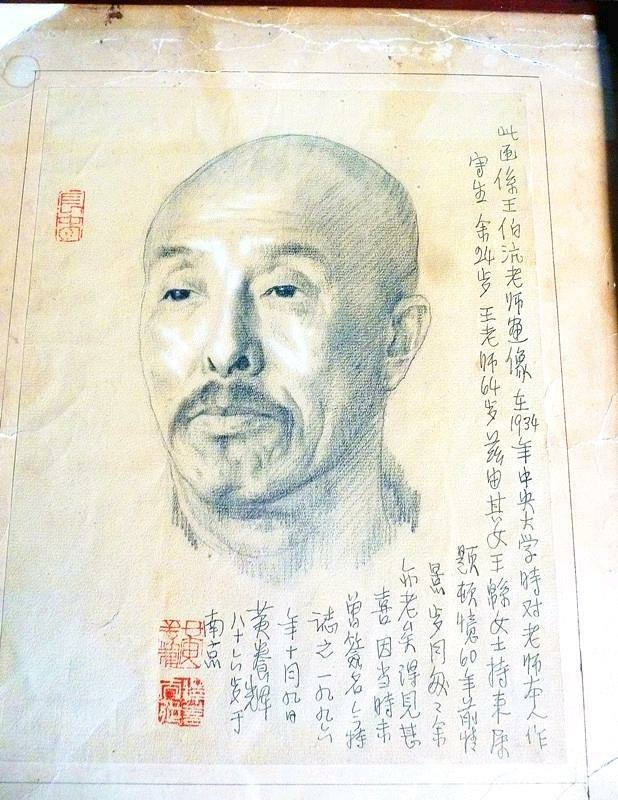 此画係王伯沆老师画像 在1934年中央大学时对老师本人作
写生 余24岁 王老师64岁 兹由其女王緜女士持来属
题 顿憶60年前情
景 岁月匆匆 余
亦老矣 得见甚
喜 因当时未
曾签名 今特
誌之 一九九六
年十月九日
黄養輝
八十六岁于
南京